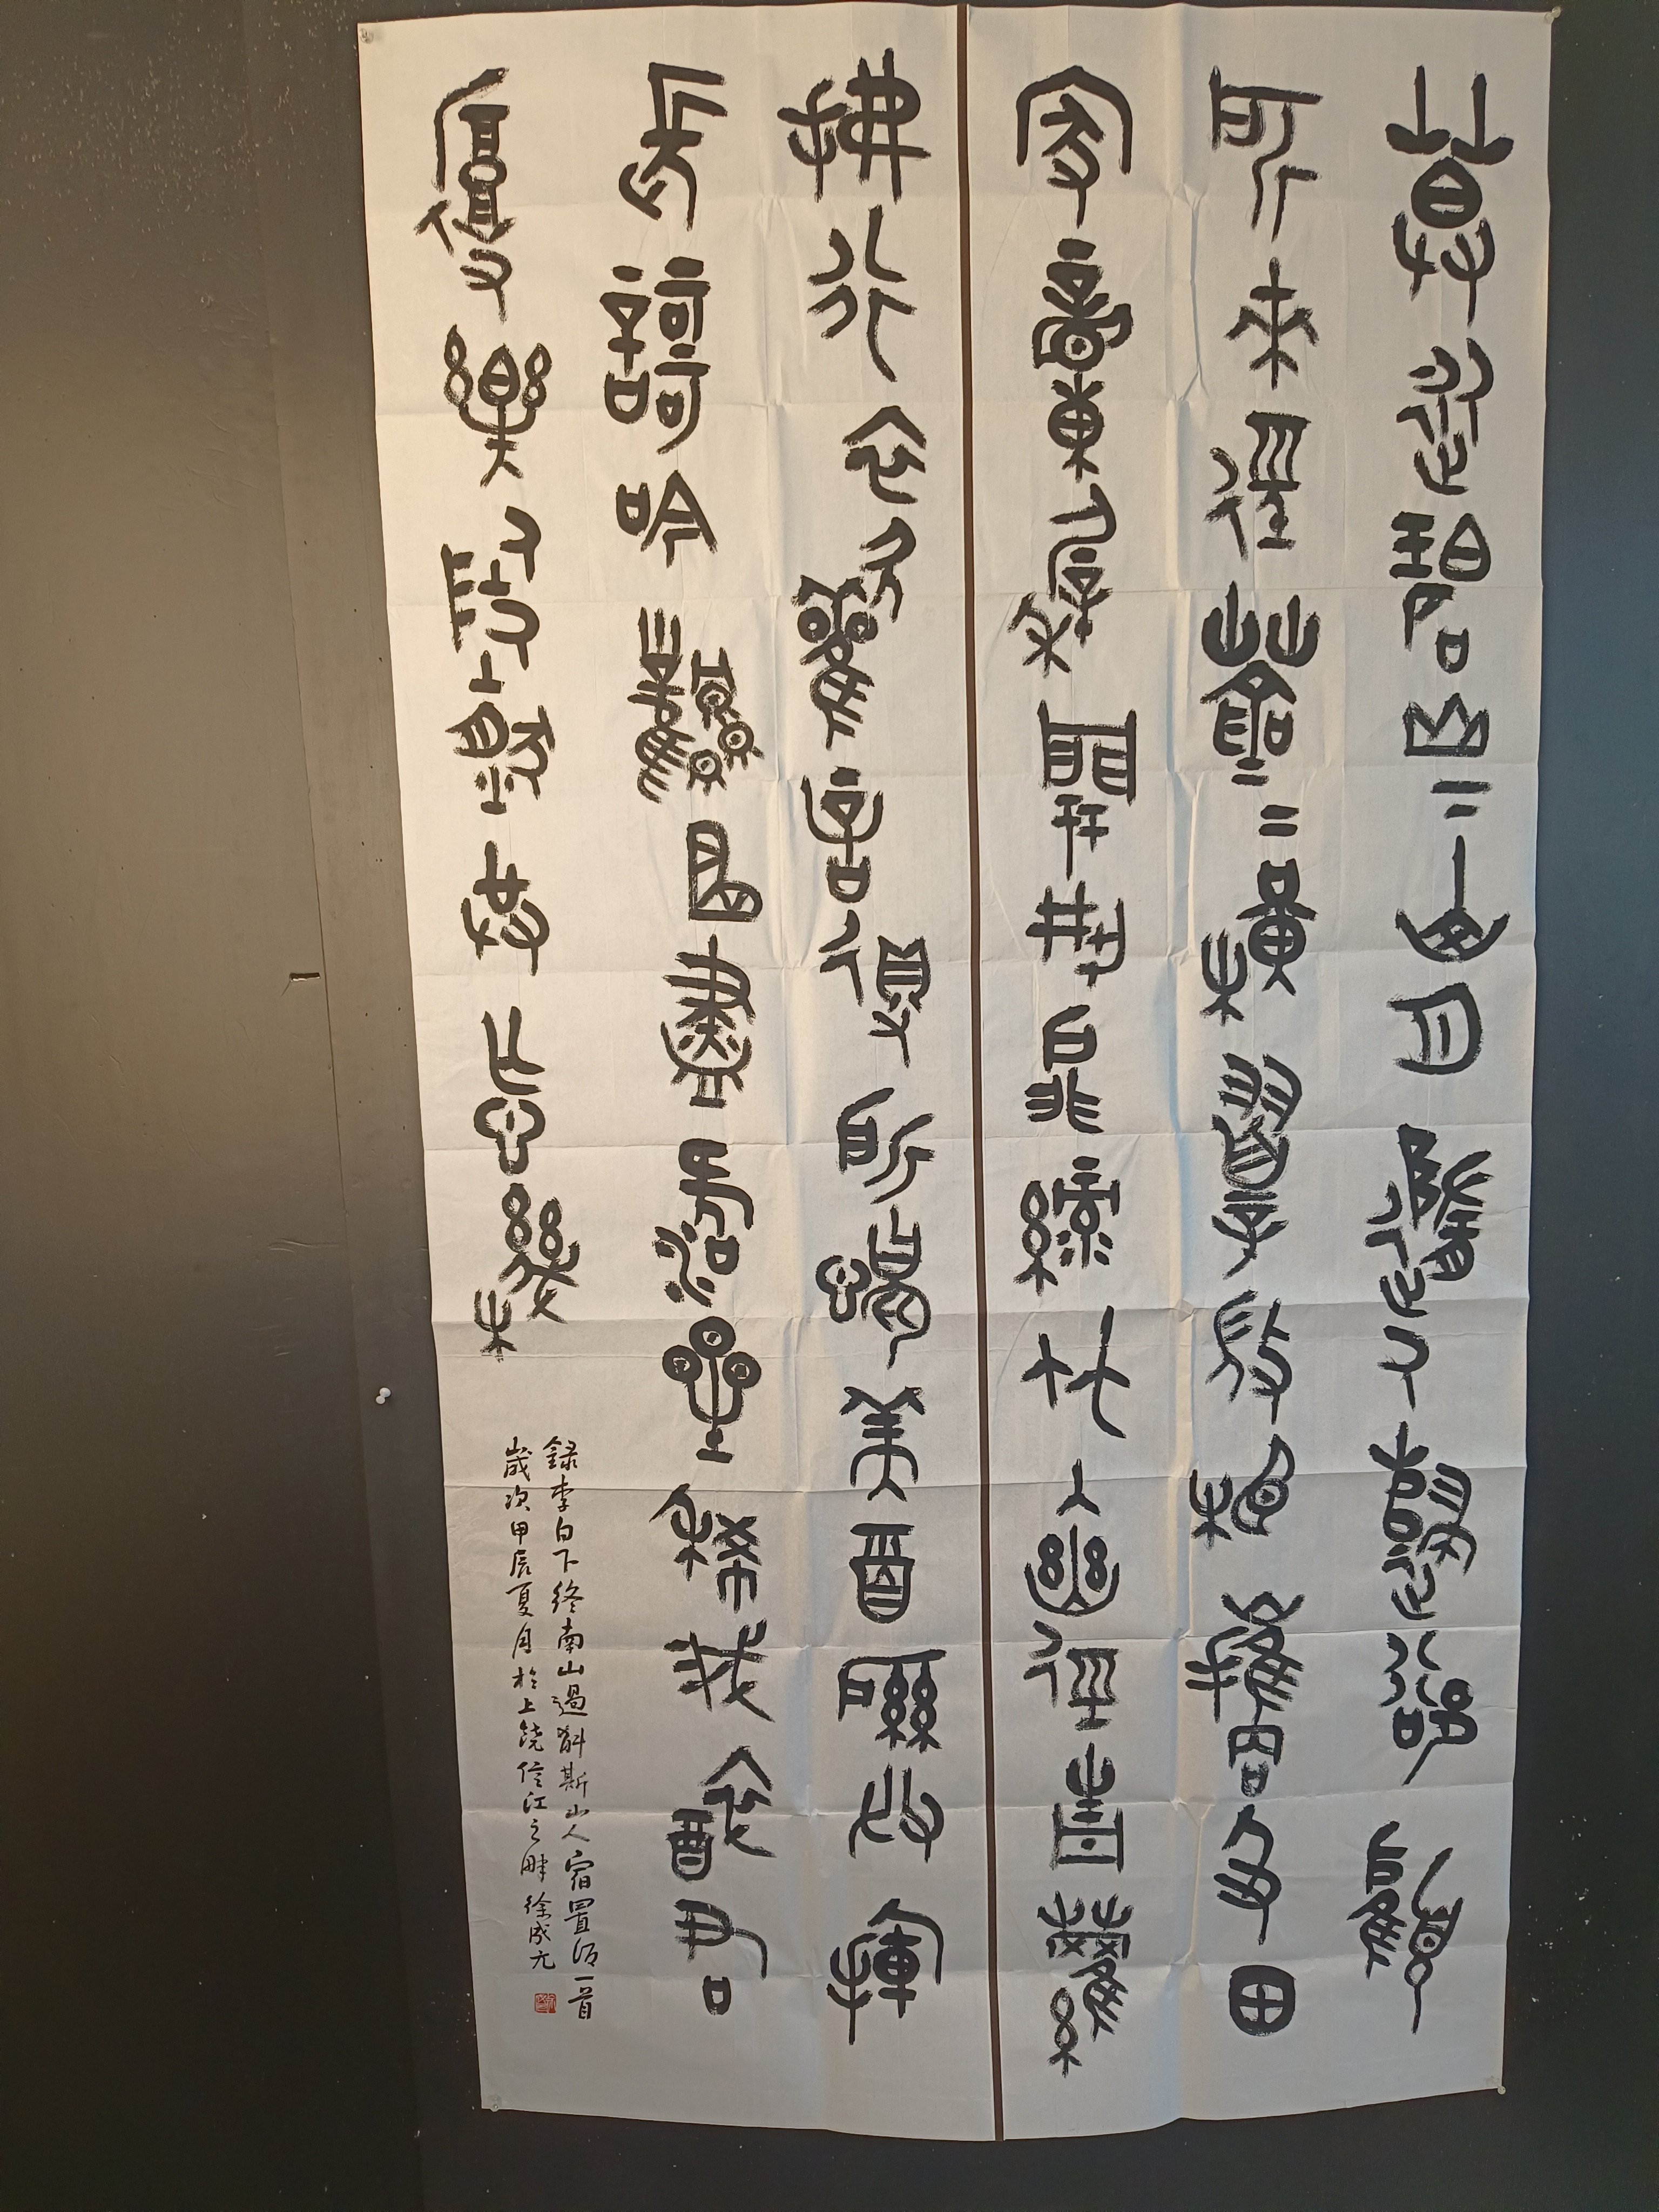 暮從碧山〻下月隨人歸卻顧
所來徑蒼〻橫翠微相攜及田
家童稚開荊扉綠竹入幽徑青蘿
拂行衣歡言得所憩美酒聊共揮
長歌吟松風曲盡河星稀我醉君
復樂陶然共忘機
錄李白下終南山過斛斯山人宿置酒一首
歲次甲辰夏月於上饒信江之畔 徐成